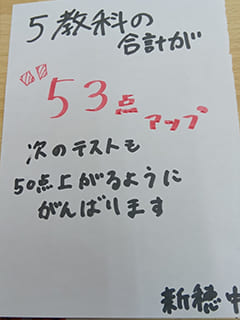 5教科の
合計が
53点
アップ
次のテストも
50点上がるように
がんばります
新穂中